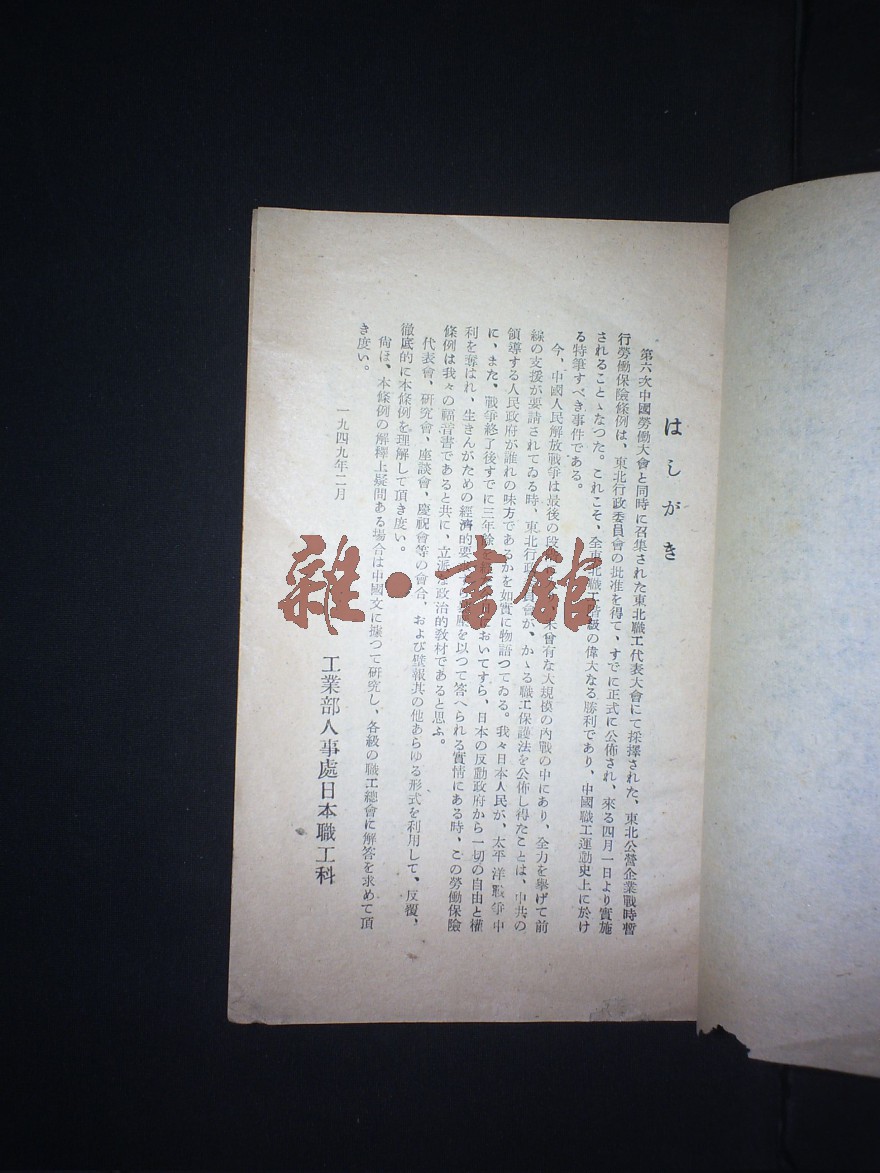 はしがき
第六次中國勞働大會と同時に召集された東北職工代表大會にて採擇された、東北公營企業戰時暫
行勞働保險條例は、東北行政委員會の批准を得て、すでに正式に公佈され、來る四月一日より實施
されることゝなつた。これこそ、全東北職工階級の偉大なる勝利であり、中國職工運動史上に於け
る特筆すべき事件である。
今、中國人民解放戰爭は最後の段 未曾有な大規模の內戰の中にあり、全力を擧げて前
線の支援が要請されてゐる時、東北行政 會が、かゝる職工保護法を公佈し得たことは、中共の
領導する人民政府が誰れの味方であるかを如實に物語つてゐる。我々日本人民が、太平洋戰爭中
に、また、戰爭終了後すでに三年餘 においてすら、日本の反動政府から一切の自由と權
利を奪はれ、生きんがための經濟的要 を以つて答へられる實情にある時、この勞働保險
條例は我々の福音書であると共に、立派な政治的敎材であると思ふ。
代表會、研究會、座談會、慶祝會等の會合、および壁報其の他あらゆる形式を利用して、反覆、
徹底的に本條例を理解して頂き度い。
尙ほ、本條例の解釋上疑問ある場合は中國文に據つて研究し、各級の職工總會に解答を求めて頂
き度い。
一九四九年二月
工業部人事處日本職工科
雜·書館